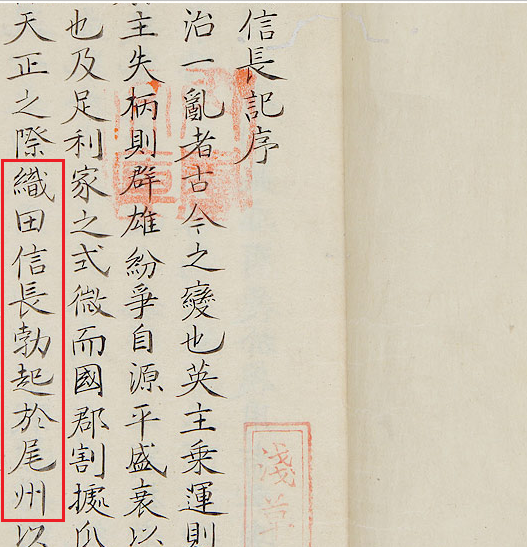 信長記序
治一亂者古今之變也英主乗運則
主失柄則群雄紛爭自源平盛衰以
也及足利家之式微而國郡割據瓜
天正之際織田信長勃起於尾州以
淺草